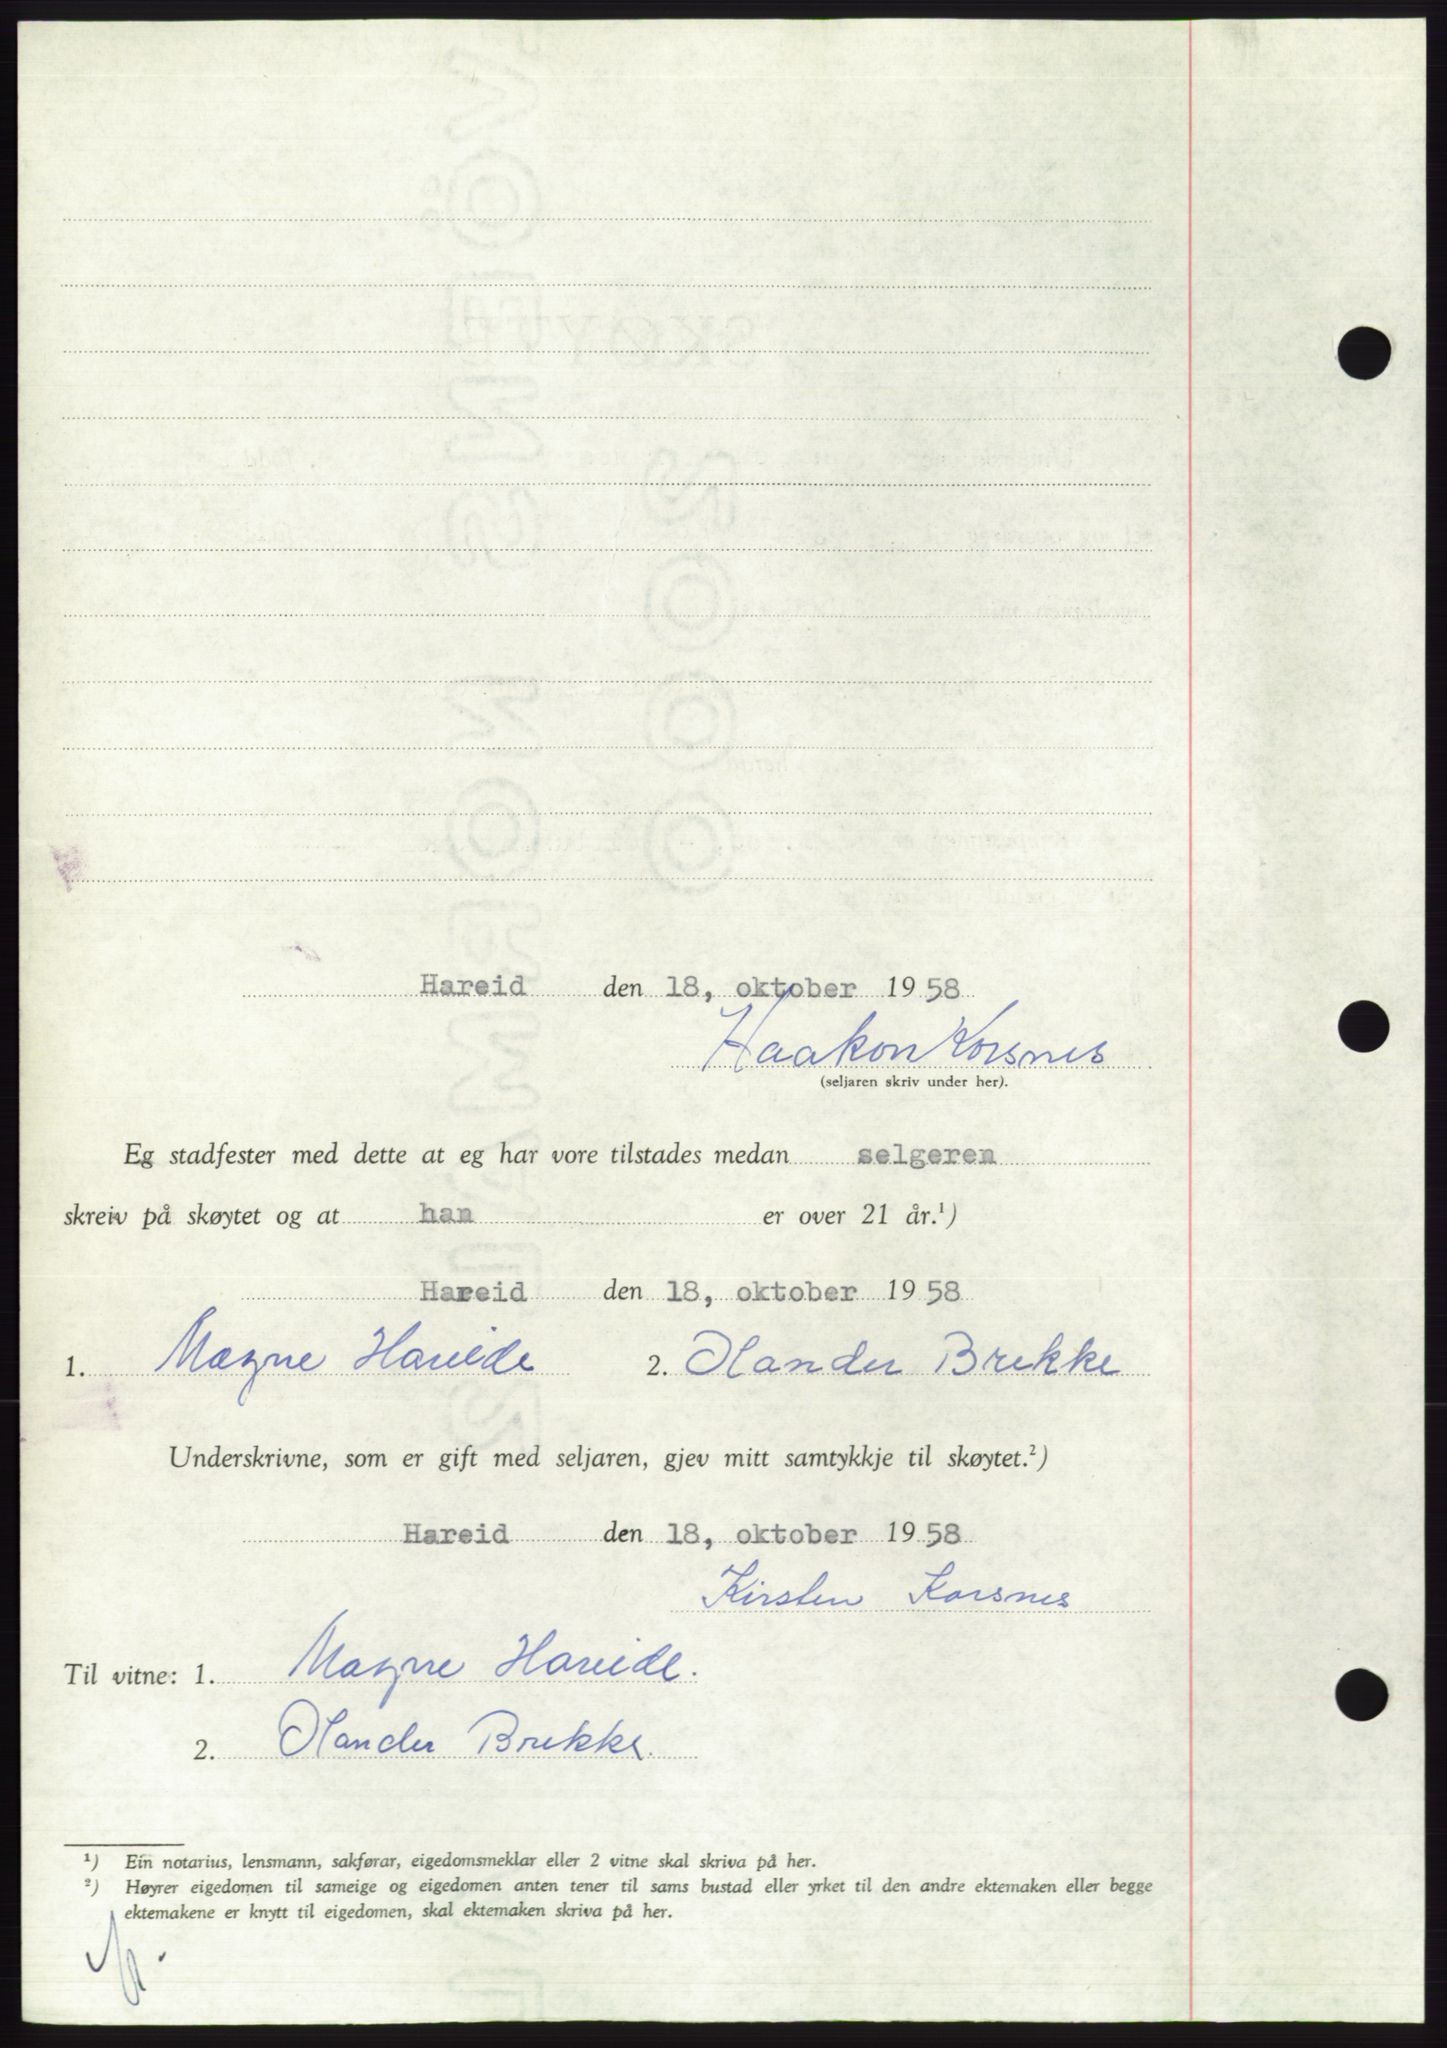 Hareid den 18, oktober 1958
Haakon Korsnes
(seljaren skriv under her).
Eg stadfester med dette at eg har vore tilstades medan selgeren
skreiv på skøytet og at han er over 21 år.¹)
Hareid den 18, oktober 1958
1. Magne Hareide 2. Olander Brekke
Underskrivne, som er gift med seljaren, gjev mitt samtykkje til skøytet.²)
Hareid den 18, oktober 1958
Kirsten Korsnes
Til vitne: 1. Magne Hareide.
2. Olander Brekke.
¹) Ein notarius, lensmann, sakførar, eigedomsmeklar eller 2 vitne skal skriva på her.
²) Høyrer eigedomen til sameige og eigedomen anten tener til sams bustad eller yrket til den andre ektemaken eller begge
ektemakene er knytt til eigedomen, skal ektemaken skriva på her.